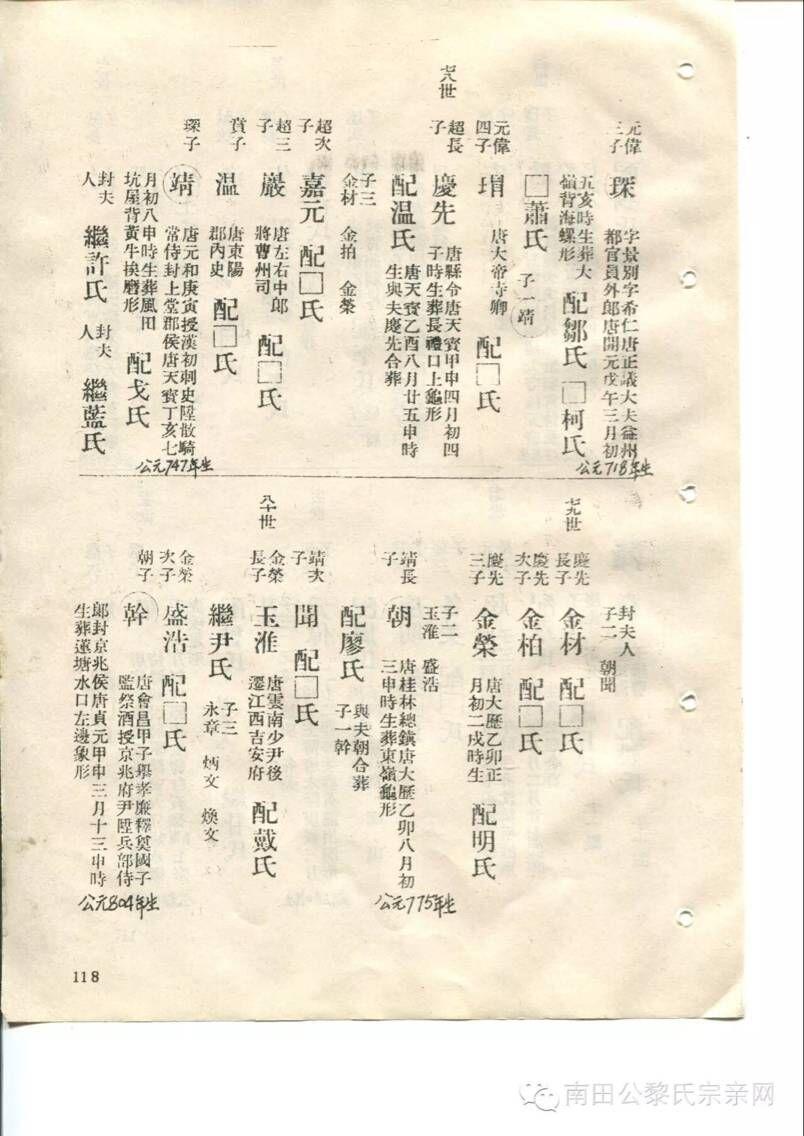 元偉三子
琛
字景別字希仁唐正議大夫益州
都官員外郎唐開元戊午三月初
五亥時生葬大
嶺背海螺形
配鄒氏
□柯氏
公元718年生
□蕭氏
子一靖
元偉四子
瑁
唐大帝寺卿
配□氏
七八世
超長子
慶先
唐縣令唐天寶甲申四月初四
子時生葬長禮口上龜形
配温氏
唐天寶乙酉八月廿五申時
生與夫慶先合葬
子三
金材 金拍 金榮
超次子
嘉元
配□氏
超三子
嚴
唐左右中郎
將曹州司
配□氏
賁子
温
唐東陽
郡內史
配□氏
琛子
靖
唐元和庚寅授漢初刺史陞散騎
常侍封上堂郡侯唐天寶丁亥七
月初八申時生葬風田
坑屋背黃牛挨磨形
配戈氏
公元747年生
封夫人
繼許氏
封夫人
繼藍氏
封夫人
子二 朝聞
七九世
慶先長子
金材
配□氏
慶先次子
金柏
配□氏
慶先三子
金榮
唐大歷乙卯正
月初二戌時生
配明氏
子二
玉淮 盛浩
靖長子
朝
唐桂林總鎮唐大歷乙卯八月初
三申時生葬東嶺龜形
公元775年生
配廖氏
與夫朝合葬
子一幹
靖次子
聞
配□氏
八十世
金榮長子
玉淮
唐雲南少尹後
遷江西吉安府
配戴氏
繼尹氏
子三
永章 炳文 煥文
金榮次子
盛浩
配□氏
朝子
幹
唐會昌甲子舉孝廉釋奠國子
監祭酒授京兆府尹陞兵部侍
郞封京兆侯唐貞元甲申三月十三申時
生葬遂塘水口左邊象形
公元804年生
118
南田公黎氏宗亲网